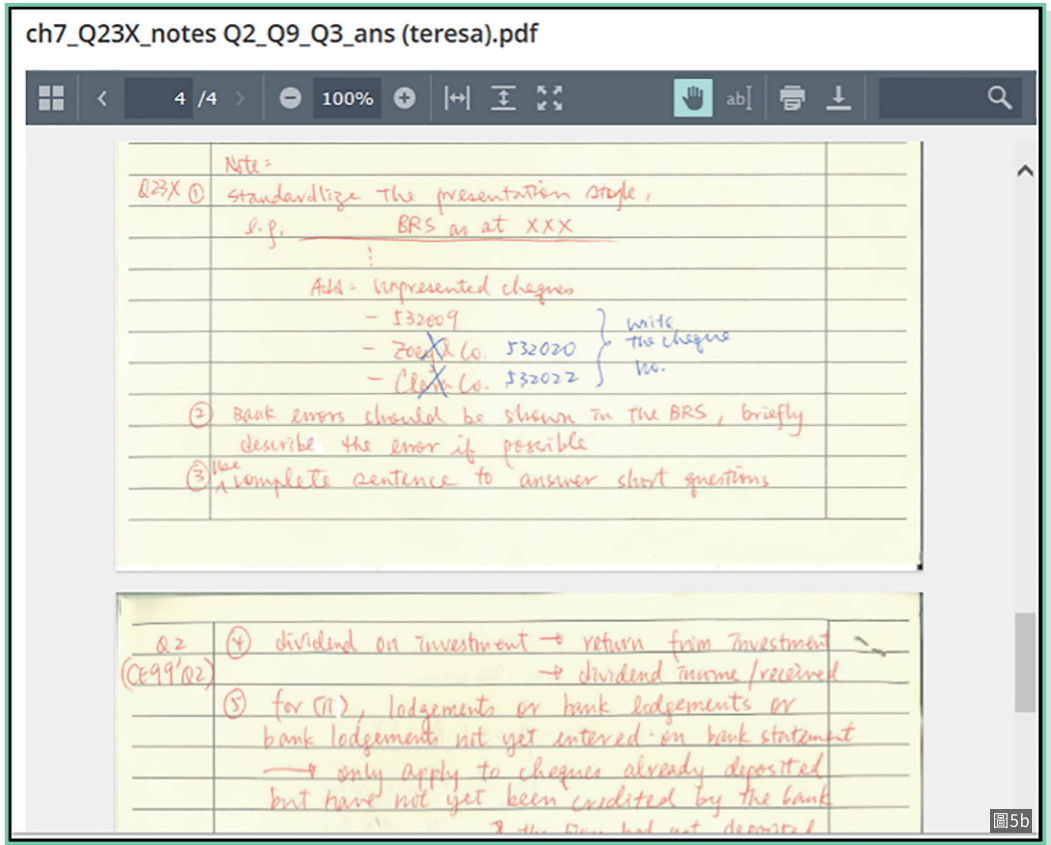 ch7_Q23X_notes Q2_Q9_Q3_ans (teresa).pdf
4 /4 100% ab
Note:
Q23X ① Standardlize the presentation style,
e.g. BRS as at XXX
Add: Unpresented cheques
- 532009
- Zoe & Co. 532020
- Clem Co. 532022
write
the cheque
no.
② Bank errors should be shown in the BRS, briefly
describe the error if possible
③ Use complete sentence to answer short questions
Q2 ④ dividend on investment → return from investment
(CE99'Q2) → dividend income/received
⑤ for (ii), lodgements or bank lodgements or
bank lodgements not yet entered on bank statement
→ only apply to cheques already deposited
but have not yet been credited by the bank
the firm had not deposited
圖5b